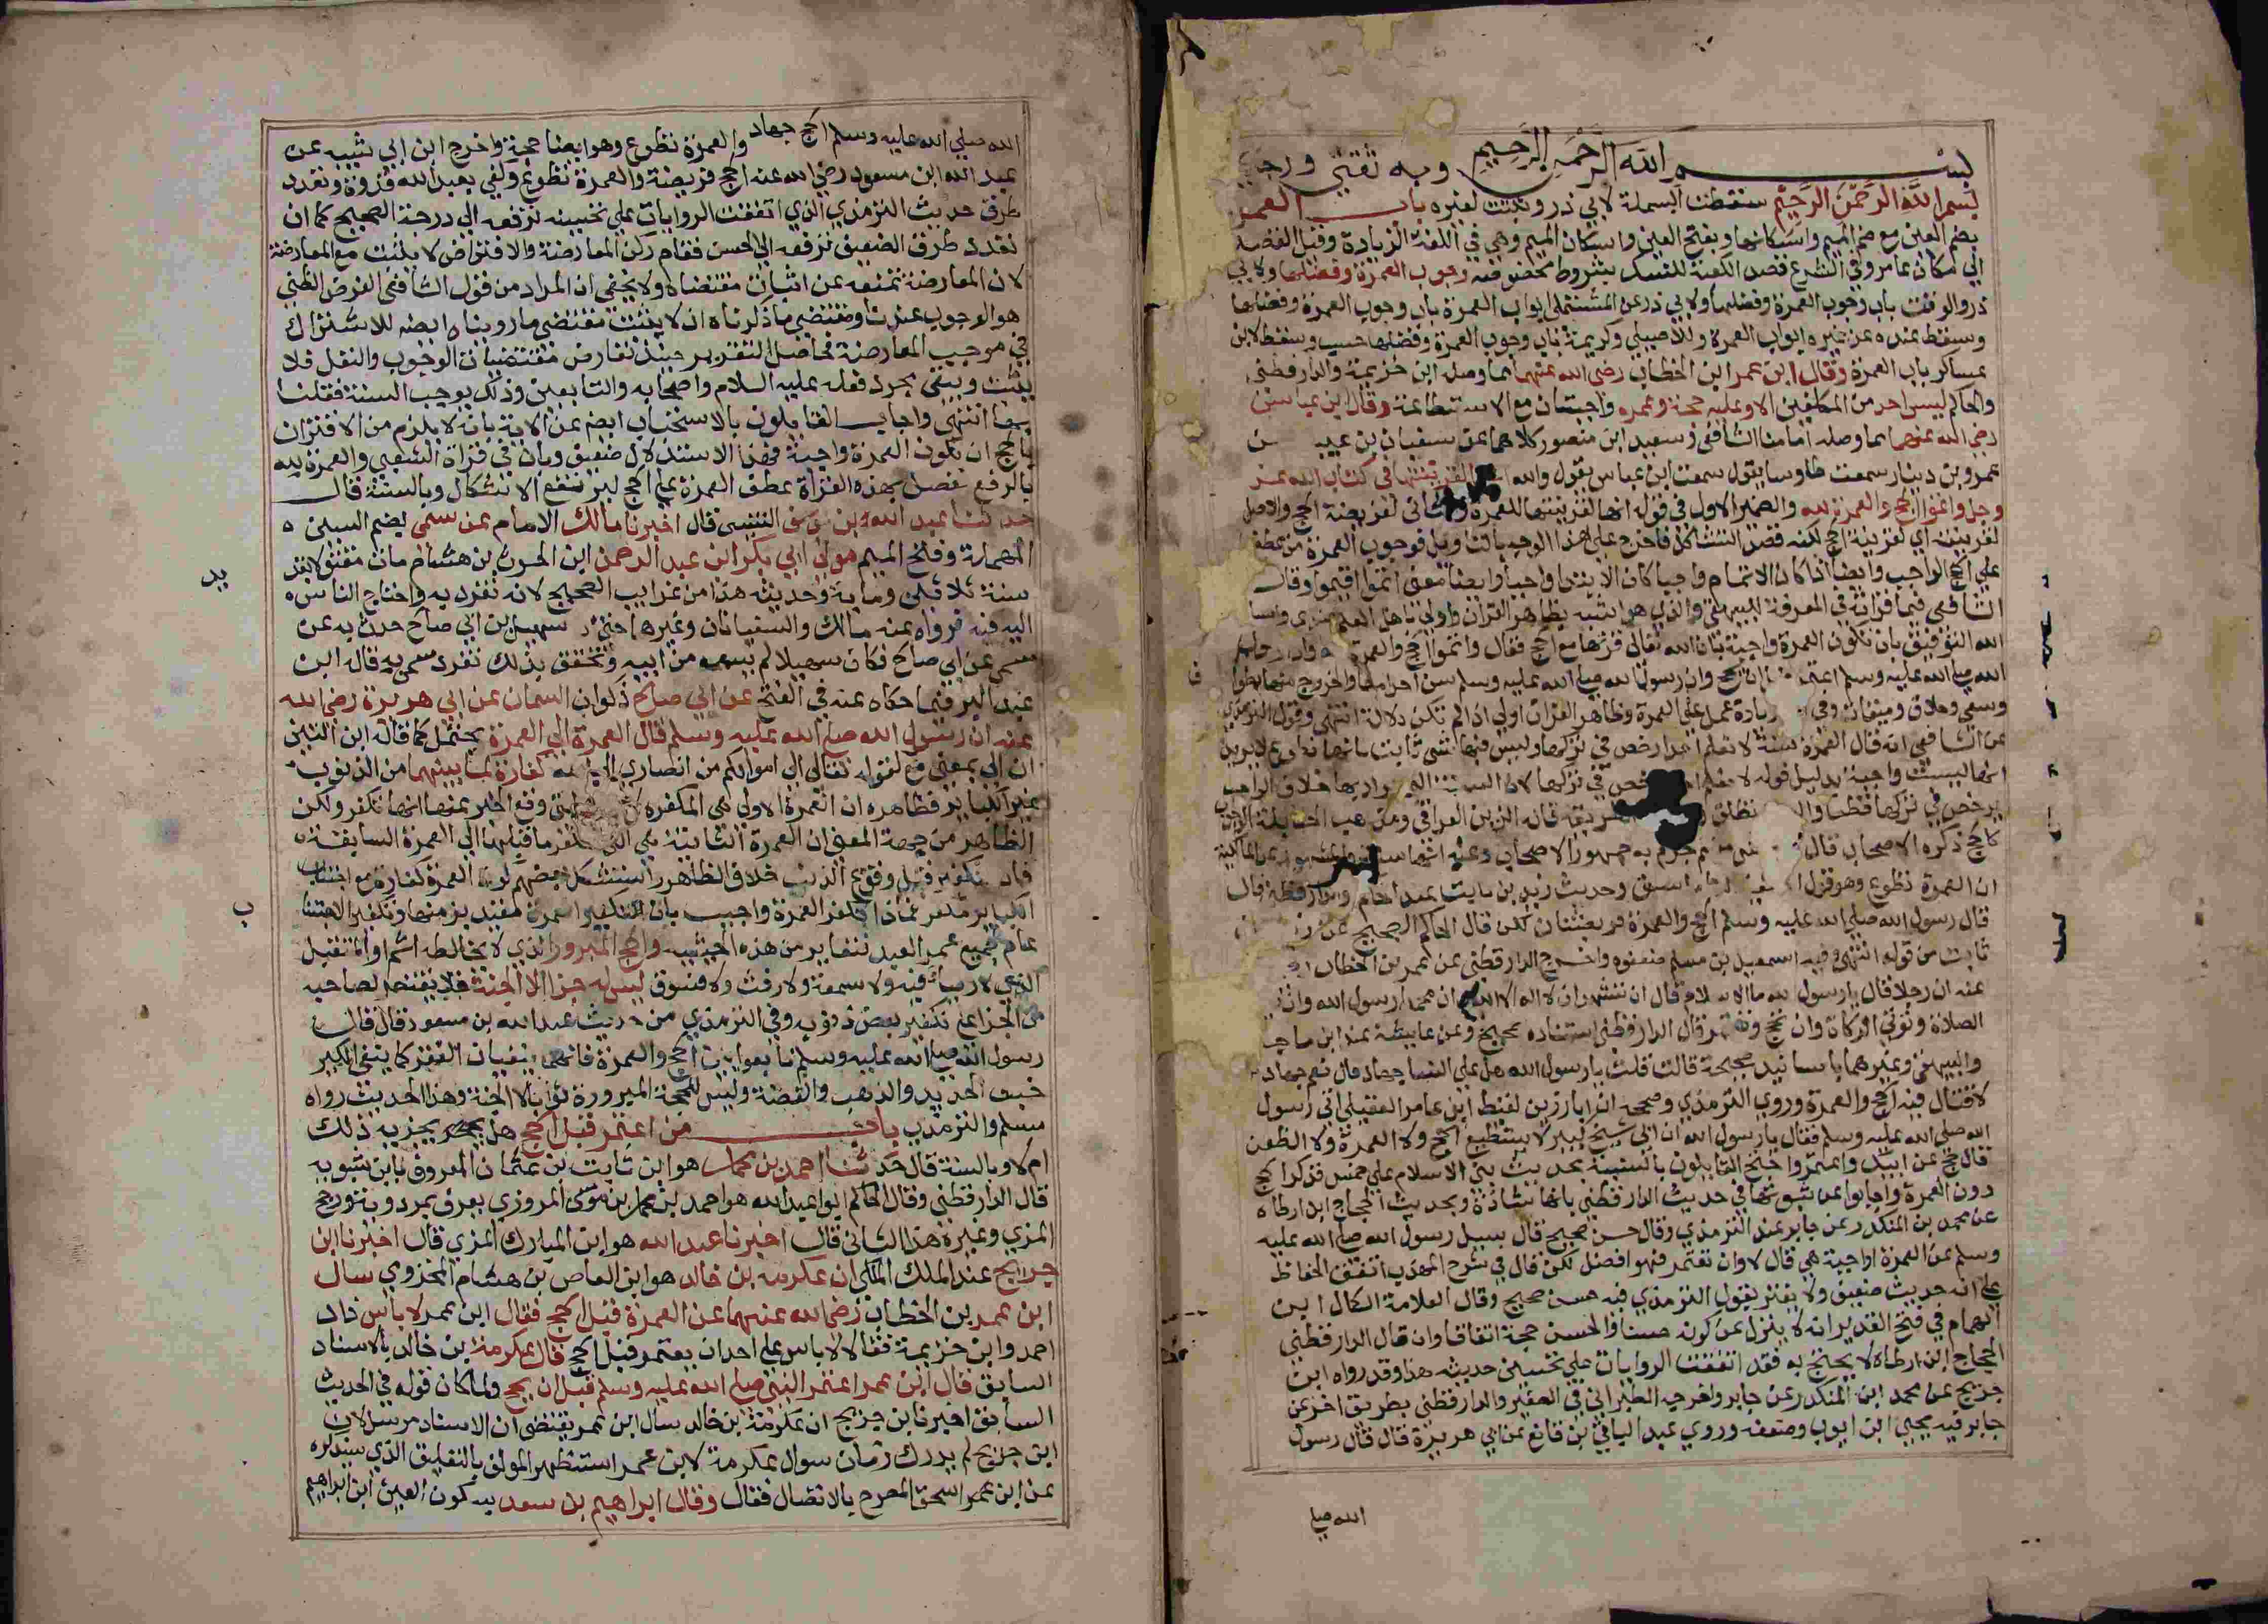 بسم الله الرحمن الرحيم وبه ثقتي
بسم الله الرحمن الرحيم سقطت البسملة لابي ذر وثبتت لغيره باب العمرة
بضم العين مع ضم الميم واسكانها وبفتح العين واسكان الميم وهي في اللغة الزيارة وقيل القصد
الي مكان عامر وفي الشرع قصد الكعبة للنسك بشروط مخصوصة وجوب العمرة وفضلها ولابي
ذر والوقت باب وجوب العمرة وفضلها ولابي ذر عن المستملي ابواب العمرة باب وجوب العمرة وفضلها
وسقط عنده عن غيره ابواب العمرة وللاصيلي وكريمة باب وجوب العمرة وفضلها حسب وسقط لابن
عساكر باب العمرة وقال ابن عمر ابن الخطاب رضي الله عنهما مما وصله ابن خزيمة والدارقطني
والحاكم ليس احد من المكلفين الا وعليه حجة وعمرة واجبتان مع الاستطاعة وقال ابن عباس
رضي الله عنهما مما وصله امامنا الشافعي وسعيد ابن منصور كلاهما عن سفيان بن عيينة
عمرو بن دينار سمعت طاوسا يقول سمعت ابن عباس يقول والله لقرينتها في كتاب الله عز
وجل واتموا الحج والعمرة لله والضمير الاول في قوله انها لقرينتها للعمرة والثاني لفريضة الحج والاصل
لقرينته اي لقرينة الحج لكنه قصد التشاكل فاخرج على هذا الوجه بالتاويل فوجوب العمرة من عطفها
علي الحج الواجب وايضا اذا كان الاتمام واجبا كان الابتدا واجبا وايضا معنى اتموا اقيموا وقال
الشافعي فيما قراته في المعرفة للبيهقي والذي هو اشبه بظاهر القران واولى باهل العلم عندي واسال
الله التوفيق بان تكون العمرة واجبة بان الله تعالى قرنها مع الحج فقال واتموا الحج والعمرة لله وان رسول
الله صلى الله عليه وسلم اعتمر قبل ان يحج وان رسول الله صلى الله عليه وسلم سن احرامها والخروج منها بطواف
وسعي وحلاق وميقات وفي زيادة عمل على العمرة وظاهر القران اولى اذا لم تكن دلالة انتهى وقول الترمذي
عن الشافعي انه قال العمرة سنة لا نعلم احدا رخص في تركها وليس فيها شي ثابت بانها تطوع لا يريد
انها ليست واجبة بدليل قوله لا نعلم احدا رخص في تركها لان السنة التي يراد بها خلاف الواجب
يرخص في تركها قطعا تطلق الطريقة قاله الزين العراقي ومذهب الحنابلة
كالحج ذكره الاصحاب قال جزم به جمهور الاصحاب وعنه انها سنة والمشهور عن المالكية
ان العمرة تطوع وهو قول سبق وحديث زيد بن ثابت عند الحاكم والدارقطني قال
قال رسول الله صلى الله عليه وسلم الحج والعمرة فريضتان لكن قال الحاكم الصحيح عن زيد بن
ثابت من قوله انتهى وفيه اسمعيل بن مسلم ضعفوه واخرج الدارقطني عن عمر بن الخطاب
عنه ان رجلا قال يا رسول الله ما الاسلام قال ان تشهد ان لا اله الا الله وان محمدا رسول الله وان تقيم
الصلاة وتوتي الزكاة وان تحج وتعتمر قال الدارقطني اسناده صحيح وعن عايشة عند ابن ماجه
والبيهقي وغيرهما باسانيد صحيحة قالت قلت يا رسول الله هل على النسا جهاد قال نعم جهاد
لا قتال فيه الحج والعمرة وروى الترمذي وصححه ان ابا رزين لقيط ابن عامر العقيلي اتى رسول
الله صلى الله عليه وسلم فقال يا رسول الله ان ابي شيخ كبير لا يستطيع الحج ولا العمرة ولا الظعن
قال حج عن ابيك واعتمر واحتج القايلون بالسنية بحديث بني الاسلام على خمس فذكر الحج
دون العمرة واجابوا عن ثبوتها في حديث الدارقطني بانها شاذة وبحديث الحجاج ابن ارطاه
عن محمد بن المنكدر عن جابر عند الترمذي وقال حسن صحيح قال سيل رسول الله صلى الله عليه
وسلم عن العمرة اواجبة هي قال لا وان تعتمر فهو افضل لكن قال في شرح المهذب اتفق الحفاظ
على انه حديث ضعيف ولا يغتر بقول الترمذي فيه حسن صحيح وقال العلامة الكمال ابن
الهمام في فتح القدير انه لا ينزل عن كونه حسنا والحسن حجة اتفاقا وان قال الدارقطني
الحجاج ابن ارطاه لا يحتج به فقد اتفقت الروايات على تحسين حديثه هذا وقد رواه ابن
جريج عن محمد ابن المنكدر عن جابر واخرجه الطبراني في الصغير والدارقطني بطريق اخر عن
جابر فيه يحيى ابن ايوب وضعفه وروى عبد الباقي بن قانع عن ابي هريرة قال قال رسول
الله صلى
الله صلى الله عليه وسلم الحج جهاد والعمرة تطوع وهو ايضا حجة واخرج ابن ابي شيبه عن
عبد الله ابن مسعود رضي الله عنه الحج فريضة والعمرة تطوع وكفى بعبد الله قدوة وتعدد
طرق حديث الترمذي الذي اتفقت الروايات على تحسينه ترفعه الي درجة الصحيح كما ان
تعدد طرق الضعيف ترفعه الي الحسن فقام ركن المعارضة والافتراض لا يثبت مع المعارضة
لان المعارضة تمنعه عن اثبات مقتضاه ولا يخفى ان المراد من قول الشافعي الفرض الظني
هو الوجوب عندنا ومقتضى ما ذكرناه ان لا يثبت مقتضى ما رويناه ايضا للاشتراك
في موجب المعارضة فحاصل التقرير حينئذ تعارض مقتضيات الوجوب والنفل فلا
يثبت ويبقى مجرد فعله عليه السلام واصحابه والتابعين وذلك يوجب السنة فقلنا
بها انتهى واجاب القايلون بالاستحباب ايضا عن الاية بانه لا يلزم من الاقتران
بالحج ان تكون العمرة واجبة فهذا الاستدلال ضعيف وبان في قراة الشعبي والعمرة لله
بالرفع ففصل بهذه القراة عطف العمرة على الحج ليرتفع الاشكال وبالسند قال
حدثنا عبد الله بن يوسف التنيسي قال اخبرنا مالك الامام عن سمي بضم السين
المهملة وفتح الميم مولى ابي بكر ابن عبد الرحمن ابن الحرث بن هشام مات مقتولا بقديد
سنة ثلاثين وماية وحديثه هذا من غرايب الصحيح لانه تفرد به واحتاج الناس
اليه فيه فرواه عنه مالك والسفيانان وغيرهما حتى ان سهيل بن ابي صالح حدث به عن
سمي عن ابي صالح فكان سهيلا لم يسمعه من ابيه وتحقق بذلك تفرد سمي به قاله ابن
عبد البر فيما حكاه عنه في الفتح عن ابي صالح ذكوان السمان عن ابي هريرة رضي الله
عنه ان رسول الله صلى الله عليه وسلم قال العمرة الي العمرة يحتمل كما قاله ابن التين
ان الي بمعنى مع كقوله تعالى الي اموالكم من انصاري الى الله كفارة لما بينهما من الذنوب
غير الكباير فظاهره ان العمرة الاولي هي المكفرة وقع الخبر عنها انها تكفر ولكن
الظاهر من جهة المعنى ان العمرة الثانية هي التي تكفر ما قبلها الي العمرة السابقة
فان التكفير قبل وقوع الذنب خلاف الظاهر واستشكل بعضهم كون العمرة كفارة مع اجتناب
الكباير مكفر فماذا تكفر العمرة واجيب بان تكفير العمرة مقيد بزمنها وتكفير الاجتناب
عام لجميع عمر العبد فتغاير من هذه الحيثية والحج المبرور الذي لا يخالطه اثم او المتقبل
الذي لا رياء فيه ولا سمعة ولا رفث ولا فسوق ليس له جزا الا الجنة فلا يقتصر لصاحبه
من الجزا على تكفير بعض ذنوبه وفي الترمذي من حديث عبد الله بن مسعود قال قال
رسول الله صلى الله عليه وسلم تابعوا بين الحج والعمرة فانهما ينفيان الفقر كما ينفي الكير
خبث الحديد والذهب والفضة وليس للحجة المبرورة ثواب الا الجنة وهذا الحديث رواه
مسلم والترمذي باب من اعتمر قبل الحج هل يجزيه ذلك
ام لا وبالسند قال حدثنا احمد بن محمد هو ابن ثابت بن عثمان المعروف بابن شبويه
قال الدارقطني وقال الحاكم ابو عبد الله هو احمد بن محمد ابن موسى المروزي يعرف بمردويه ورجح
المزي وغيره هذا الثاني قال اخبرنا عبد الله هو ابن المبارك المزي قال اخبرنا ابن
جريج عبد الملك المكي ان عكرمة بن خالد هو ابن العاص بن هشام المخزومي سال
ابن عمر بن الخطاب رضي الله عنهما عن العمرة قبل الحج فقال ابن عمر لا باس زاد
احمد وابن خزيمة فقالا لا باس على احد ان يعتمر قبل الحج قال عكرمة بن خالد بالاسناد
السابق قال ابن عمر اعتمر النبي صلى الله عليه وسلم قبل ان يحج ولما كان قوله في الحديث
السابق اخبرنا ابن جريج ان عكرمة بن خالد سال ابن عمر يقتضي ان الاسناد مرسل لان
ابن جريج لم يدرك زمان سوال عكرمة لابن عمر استظهر المولف بالتعليق الذي سيذكره
عن ابن اسحق المصرح بالاتصال فقال وقال ابراهيم بن سعد بسكون العين ابن ابراهيم